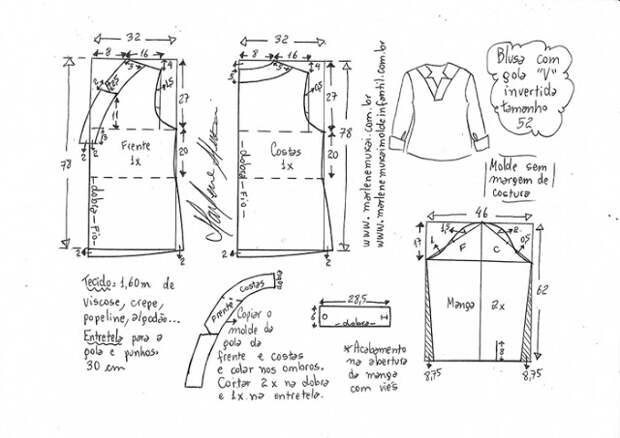 32
8
16
3
4
1,5
27
78
11
3
Frente
1x
20
- dobra - Fio -
2
2
2
Marlene Mukai
32
8
16
3
4
0,5
27
78
Costas
1x
20
- dobra - Fio -
2
2
www.marlenemukai.com.br
www.marlenemukaimoldeinfantil.com.br
Blusa com
gola "V"
invertida
tamanho
52
Molde sem
margem de
costura
46
17
1
2
F
C
0,5
62
Manga
2x
8
8,75
8,75
Tecido: 1,60m de
viscose, crepe,
popeline, algodão...
Entretela para a
gola e punhos.
30 cm
Costas
Frente
dobra
Copiar o
molde da
gola da
frente e costas
e colar nos ombros.
Cortar 2x na dobra
e 1x na entretela.
28,5
6
- dobra -
*Acabamento
na abertura
da manga
com viés